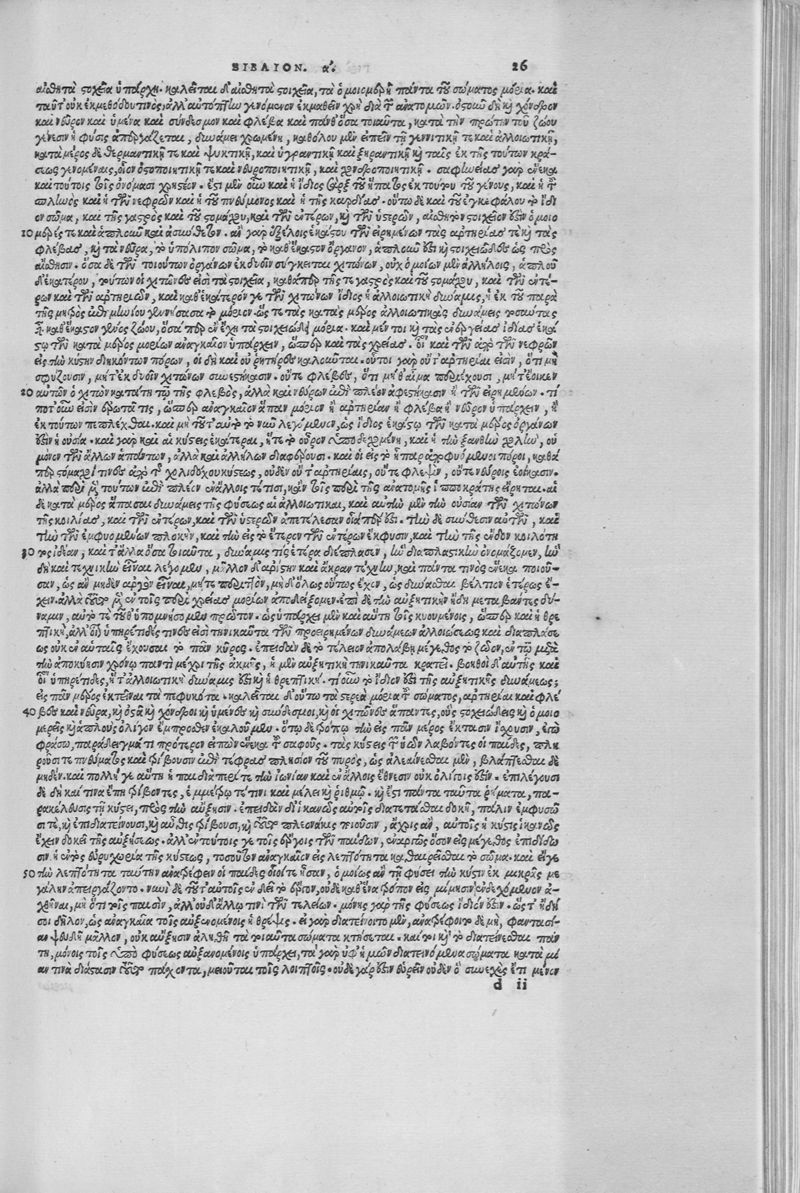 ΒΙΒΛΙΟΝ. α΄. 26
αἰσθητὰ στοιχεῖα ὑπάρχῃ. καλεῖται δ' αἰσθητὰ στοιχεῖα, τὰ ὁμοιομερῆ πάντα τοῦ σώματος μόρια. καὶ
ταῦτ' οὐκ ἐκ μεθόδου τινὸς, ἀλλ' αὐτόπτην γενόμενον ἐκμαθεῖν χρὴ διὰ τῶν ἀνατομῶν. ὀστοῦν δὴ καὶ χόνδρον
καὶ νεῦρον καὶ ὑμένα καὶ σύνδεσμον καὶ φλέβα καὶ πάνθ' ὅσα τοιαῦτα, κατὰ τὴν πρώτην τοῦ ζώου
γένεσιν ἡ φύσις ἀπεργάζεται, δυνάμει χρωμένη, καθόλου μὲν εἰπεῖν τῇ γεννητικῇ τε καὶ ἀλλοιωτικῇ,
κατὰ μέρος δὲ θερμαντικῇ τε καὶ ψυκτικῇ, καὶ ὑγραντικῇ καὶ ξηραντικῇ καὶ ταῖς ἐκ τῆς τούτων κρά
σεως γενομέναις, οἷον ὀστοποιητικῇ τε καὶ νευροποιητικῇ, καὶ χονδροποιητικῇ. σαφηνείας γὰρ ἕνεκα
καὶ τούτοις τοῖς ὀνόμασι χρηστέον. ἔστι μὲν οὖν καὶ ἡ ἴδιος σὰρξ τοῦ ἥπατος ἐκ τούτου τοῦ γένους, καὶ ἡ τοῦ
σπληνὸς καὶ ἡ τῶν νεφρῶν καὶ ἡ τοῦ πνεύμονος καὶ ἡ τῆς καρδίας. οὕτω δὲ καὶ τοῦ ἐγκεφάλου τὸ ἴδι
ον σῶμα, καὶ τῆς γαστρὸς καὶ τοῦ στομάχου, καὶ τῶν ἐντέρων, καὶ τῶν ὑστερῶν, αἰσθητὸν στοιχεῖόν ἐστιν ὁμοιο
10 μερές τε καὶ ἁπλοῦν καὶ ἀσύνθετον. ἂν γὰρ ἐξέλῃς ἑκάστου τῶν εἰρημένων τὰς ἀρτηρίας τε καὶ τὰς
φλέβας, καὶ τὰ νεῦρα, τὸ ὑπόλοιπον σῶμα, τὸ καθ' ἕκαστον ὄργανον, ἁπλοῦν ἐστι καὶ στοιχειῶδες ὡς πρὸς
αἴσθησιν. ὅσα δὲ τῶν τοιούτων ὀργάνων ἐκ δυοῖν σύγκειται χιτώνων, οὐχ ὁμοίων μὲν ἀλλήλοις, ἁπλοῦ
δ' ἑκατέρου, τούτων οἱ χιτῶνές εἰσι τὰ στοιχεῖα, καθάπερ τῆς τε γαστρὸς καὶ τοῦ στομάχου, καὶ τῶν ἐντέ
ρων καὶ τῶν ἀρτηριῶν, καὶ καθ' ἑκάτερόν γε τῶν χιτώνων ἴδιος ἡ ἀλλοιωτικὴ δύναμις, ἡ ἐκ τοῦ παρὰ
τῆς μητρὸς ἐπιμηνίου γεννήσασα τὸ μόριον. ὥστε τὰς κατὰ μέρος ἀλλοιωτικὰς δυνάμεις τοσαύτας
εἶναι καθ' ἕκαστον γένος ζώου, ὅσα περ ἂν ἔχῃ τὰ στοιχειώδη μόρια. καὶ μέν τοι καὶ τὰς ἐνεργείας ἰδίας ἑκά
στῳ τῶν κατὰ μέρος μορίων ἀναγκαῖον ὑπάρχειν, ὥσπερ καὶ τὰς χρείας. οἷ καὶ τῶν ἀπὸ τῶν νεφρῶν
εἰς τὴν κύστιν διηκόντων πόρων, οἱ δὴ καὶ οὐρητῆρες καλοῦνται. οὗτοι γὰρ οὔτ' ἀρτηρίαι εἰσὶν, ὅτι μὴ
σφύζουσιν, μήτ' ἐκ δυοῖν χιτώνων συνεστήκασιν. οὔτε φλέβες, ὅτι μήθ' αἷμα περιέχουσι, μήτ' ἔοικεν
20 αὐτῶν ὁ χιτὼν κατά τι τῷ τῆς φλεβὸς, ἀλλὰ καὶ νεύρων ἐπὶ πλέον ἀφεστήκασιν ἢ τῶν εἰρημένων. τί
ποτ' οὖν εἰσιν ἐρωτᾷ τις, ὥσπερ ἀναγκαῖον ἅπαν μόριον ἢ ἀρτηρίαν ἢ φλέβα ἢ νεῦρον ὑπάρχειν, ἢ
ἐκ τούτων πεπλέχθαι. καὶ μὴ τοῦτ' αὐτὸ τὸ νῦν λεγόμενον, ὡς ἴδιος ἑκάστῳ τῶν κατὰ μέρος ὀργάνων
ἐστὶν ἡ οὐσία. καὶ γὰρ καὶ αἱ κύστεις ἑκάτεραι, ἥ τε τὸ οὖρον ὑποδεχομένη, καὶ ἡ τὴν ξανθὴν χολὴν, οὐ
μόνον τῶν ἄλλων ἁπάντων, ἀλλὰ καὶ ἀλλήλων διαφέρουσι. καὶ οἱ εἰς τὸ ἧπαρ ἀποφυόμενοι πόροι, καθά
περ στόμαχοί τινες ἀπὸ τῆς χοληδόχου κύστεως, οὐδὲν οὔτ' ἀρτηρίαις, οὔτε φλεψὶν, οὔτε νεύροις ἐοίκασιν.
ἀλλὰ περὶ μὲν τούτων ἐπὶ πλέον ἐν ἄλλοις τέ τισι, κἀν τοῖς περὶ τῆς ἀνατομῆς ἱπποκράτης εἴρηται. αἱ
δὲ κατὰ μέρος ἅπασαι δυνάμεις τῆς φύσεως αἱ ἀλλοιωτικαὶ, καὶ αὐτὴν μὲν τὴν οὐσίαν τῶν χιτώνων
τῆς κοιλίας, καὶ τῶν ἐντέρων, καὶ τῶν ὑστερῶν ἀπετέλεσαν οἵαπέρ ἐστι. τὴν δὲ σύνθεσιν αὐτῶν, καὶ
τὴν τῶν ἐμφυομένων πλοκὴν, καὶ τὴν εἰς τὸ ἕτερον τῶν ἐντέρων ἔκφυσιν, καὶ τὴν τῆς ἔνδον κοιλότη
30 τος ἰδέαν, καὶ τἄλλα ὅσα τοιαῦτα, δύναμίς τις ἑτέρα διέπλασεν, ἣν διαπλαστικὴν ὀνομάζομεν, ἣν
δὴ καὶ τεχνικὴν εἶναι λέγομεν, μᾶλλον δ' ἀρίστην καὶ ἄκραν τέχνην, καὶ πάντα τινὸς ἕνεκα ποιοῦ
σαν, ὡς ἂν μηδὲν ἀργὸν εἶναι, μήτε περιττὸν, μηδ' ὅλως οὕτως ἔχειν, ὡς δύνασθαι βέλτιον ἑτέρως ἔ
χειν. ἀλλὰ τοῦτο μὲν ἐν τοῖς περὶ χρείας μορίων ἀποδείξομεν. ἐπὶ δὲ τὴν αὐξητικὴν ἤδη μεταβάντες δύ
ναμιν, αὐτὸ τοῦθ' ὑπομνήσωμεν πρῶτον. ὡς ὑπάρχει μὲν καὶ αὕτη τοῖς κυουμένοις, ὥσπερ καὶ ἡ θρε
πτικὴ, ἀλλ' οἷον ὑπηρέτιδές τινές εἰσι τηνικαῦτα τῶν προειρημένων δυνάμεων ἀλλοιώσεως καὶ διαπλάσε
ως οὐκ ἐν αὐταῖς ἔχουσαι τὸ πᾶν κῦρος. ἐπειδὰν δὲ τὸ τέλειον ἀπολάβῃ μέγεθος τὸ ζῶον, ἐν τῷ μετὰ
τὴν ἀποκύησιν χρόνῳ παντὶ μέχρι τῆς ἀκμῆς, ἡ μὲν αὐξητικὴ τηνικαῦτα κρατεῖ. βοηθοὶ δ' αὐτῆς καὶ
οἷον ὑπηρέτιδες, ἥ τ' ἀλλοιωτικὴ δύναμίς ἐστι καὶ ἡ θρεπτική. τί οὖν τὸ ἴδιόν ἐστι τῆς αὐξητικῆς δυνάμεως;
εἰς πᾶν μέρος ἐκτεῖναι τὰ πεφυκότα. καλεῖται δ' οὕτω τὰ στερεὰ μόρια τοῦ σώματος, ἀρτηρίαι καὶ φλέ
40 βες καὶ νεῦρα, καὶ ὀστᾶ καὶ χόνδροι καὶ ὑμένες καὶ σύνδεσμοι, καὶ οἱ χιτῶνες ἅπαντες, οὓς στοιχειώδεις καὶ ὁμοιο
μερεῖς καὶ ἁπλοὺς ὀλίγον ἔμπροσθεν ἐκαλοῦμεν. ὅτῳ δὲ τρόπῳ τὴν εἰς πᾶν μέρος ἔκτασιν ἴσχουσιν, ἐγὼ
φράσω, παράδειγμά τι πρότερον εἰπὼν ἕνεκα τοῦ σαφοῦς. τὰς κύστεις τῶν ὑῶν λαβόντες οἱ παῖδες, πλη
ροῦσί τε πνεύματος καὶ τρίβουσιν ἐπὶ τέφρας πλησίον τοῦ πυρὸς, ὡς ἀλεαίνεσθαι μὲν, βλάπτεσθαι δὲ
μηδέν. καὶ πολλή γε αὕτη ἡ παιδιὰ περί τε τὴν ἰωνίαν καὶ ἐν ἄλλοις ἔθνεσιν οὐκ ὀλίγοις ἐστίν. ἐπιλέγουσι
δὲ δὴ καί τινα ἔπη τρίβοντες, ἐμμέτρῳ τέ τινι καὶ μέλει καὶ ῥυθμῷ. καὶ ἔστι πάντα ταῦτα ῥήματα, πα
ρακέλευσις τῇ κύστει, πρὸς τὴν αὔξησιν. ἐπειδὰν δ' ἱκανῶς αὐτοῖς διατετάσθαι δοκῇ, πάλιν ἐμφυσῶ
σί τε, καὶ ἐπιδιατείνουσι, καὶ αὖθις τρίβουσι, καὶ τοῦτο πλεονάκις ποιοῦσιν, ἄχρις ἂν, αὐτοῖς ἡ κύστις ἱκανῶς
ἔχειν δοκεῖ τῆς αὐξήσεως. ἀλλ' ἐν τούτοις γε τοῖς ἔργοις τῶν παίδων, ἐναργῶς ὅσον εἰς μέγεθος ἐπιδίδω
σιν ἡ ἐντὸς εὐρυχωρία τῆς κύστεως, τοσοῦτον ἀναγκαῖον εἰς λεπτότητα καθαιρεῖσθαι τὸ σῶμα. καὶ εἴ γε
50 τὴν λεπτότητα ταύτην ἀνατρέφειν οἱ παῖδες οἷοί τε ἦσαν, ὁμοίως ἂν τῇ φύσει τὴν κύστιν ἐκ μικρᾶς με
γάλην ἀπειργάζοντο. νυνὶ δὲ τοῦτ' αὐτοῖς ἐνδεῖ τὸ ἔργον, οὐδὲ καθ' ἕνα τρόπον εἰς μίμησιν ἐνδεχόμενον ἀ
χθῆναι, μὴ ὅτι τοῖς παισὶν, ἀλλ' οὐδ' ἄλλῳ τινὶ τῶν τελείων. μόνης γὰρ τῆς φύσεως ἴδιόν ἐστιν. ὥστ' ἤδη
σοι δῆλον, ὡς ἀναγκαία τοῖς αὐξανομένοις ἡ θρέψις. εἰ γὰρ διατείνοιτο μὲν, ἀνατρέφοιτο δὲ μὴ, φαντασί
αν ψευδῆ μᾶλλον, οὐκ αὔξησιν ἀληθῆ τὰ τοιαῦτα σώματα κτήσεται. καί τοι καὶ τὸ διατείνεσθαι πάν
τῃ, μόνοις τοῖς ὑπὸ φύσεως αὐξανομένοις ὑπάρχει, τὰ γὰρ ὑφ' ἡμῶν διατεινόμενα σώματα, κατὰ μί
αν τινὰ διάστασιν τοῦτο πάσχοντα, μειοῦται ταῖς λοιπαῖς. οὐδὲ γάρ ἐστιν εὑρεῖν οὐδὲν ὃ συνεχὲς ἔτι μένον
d ii